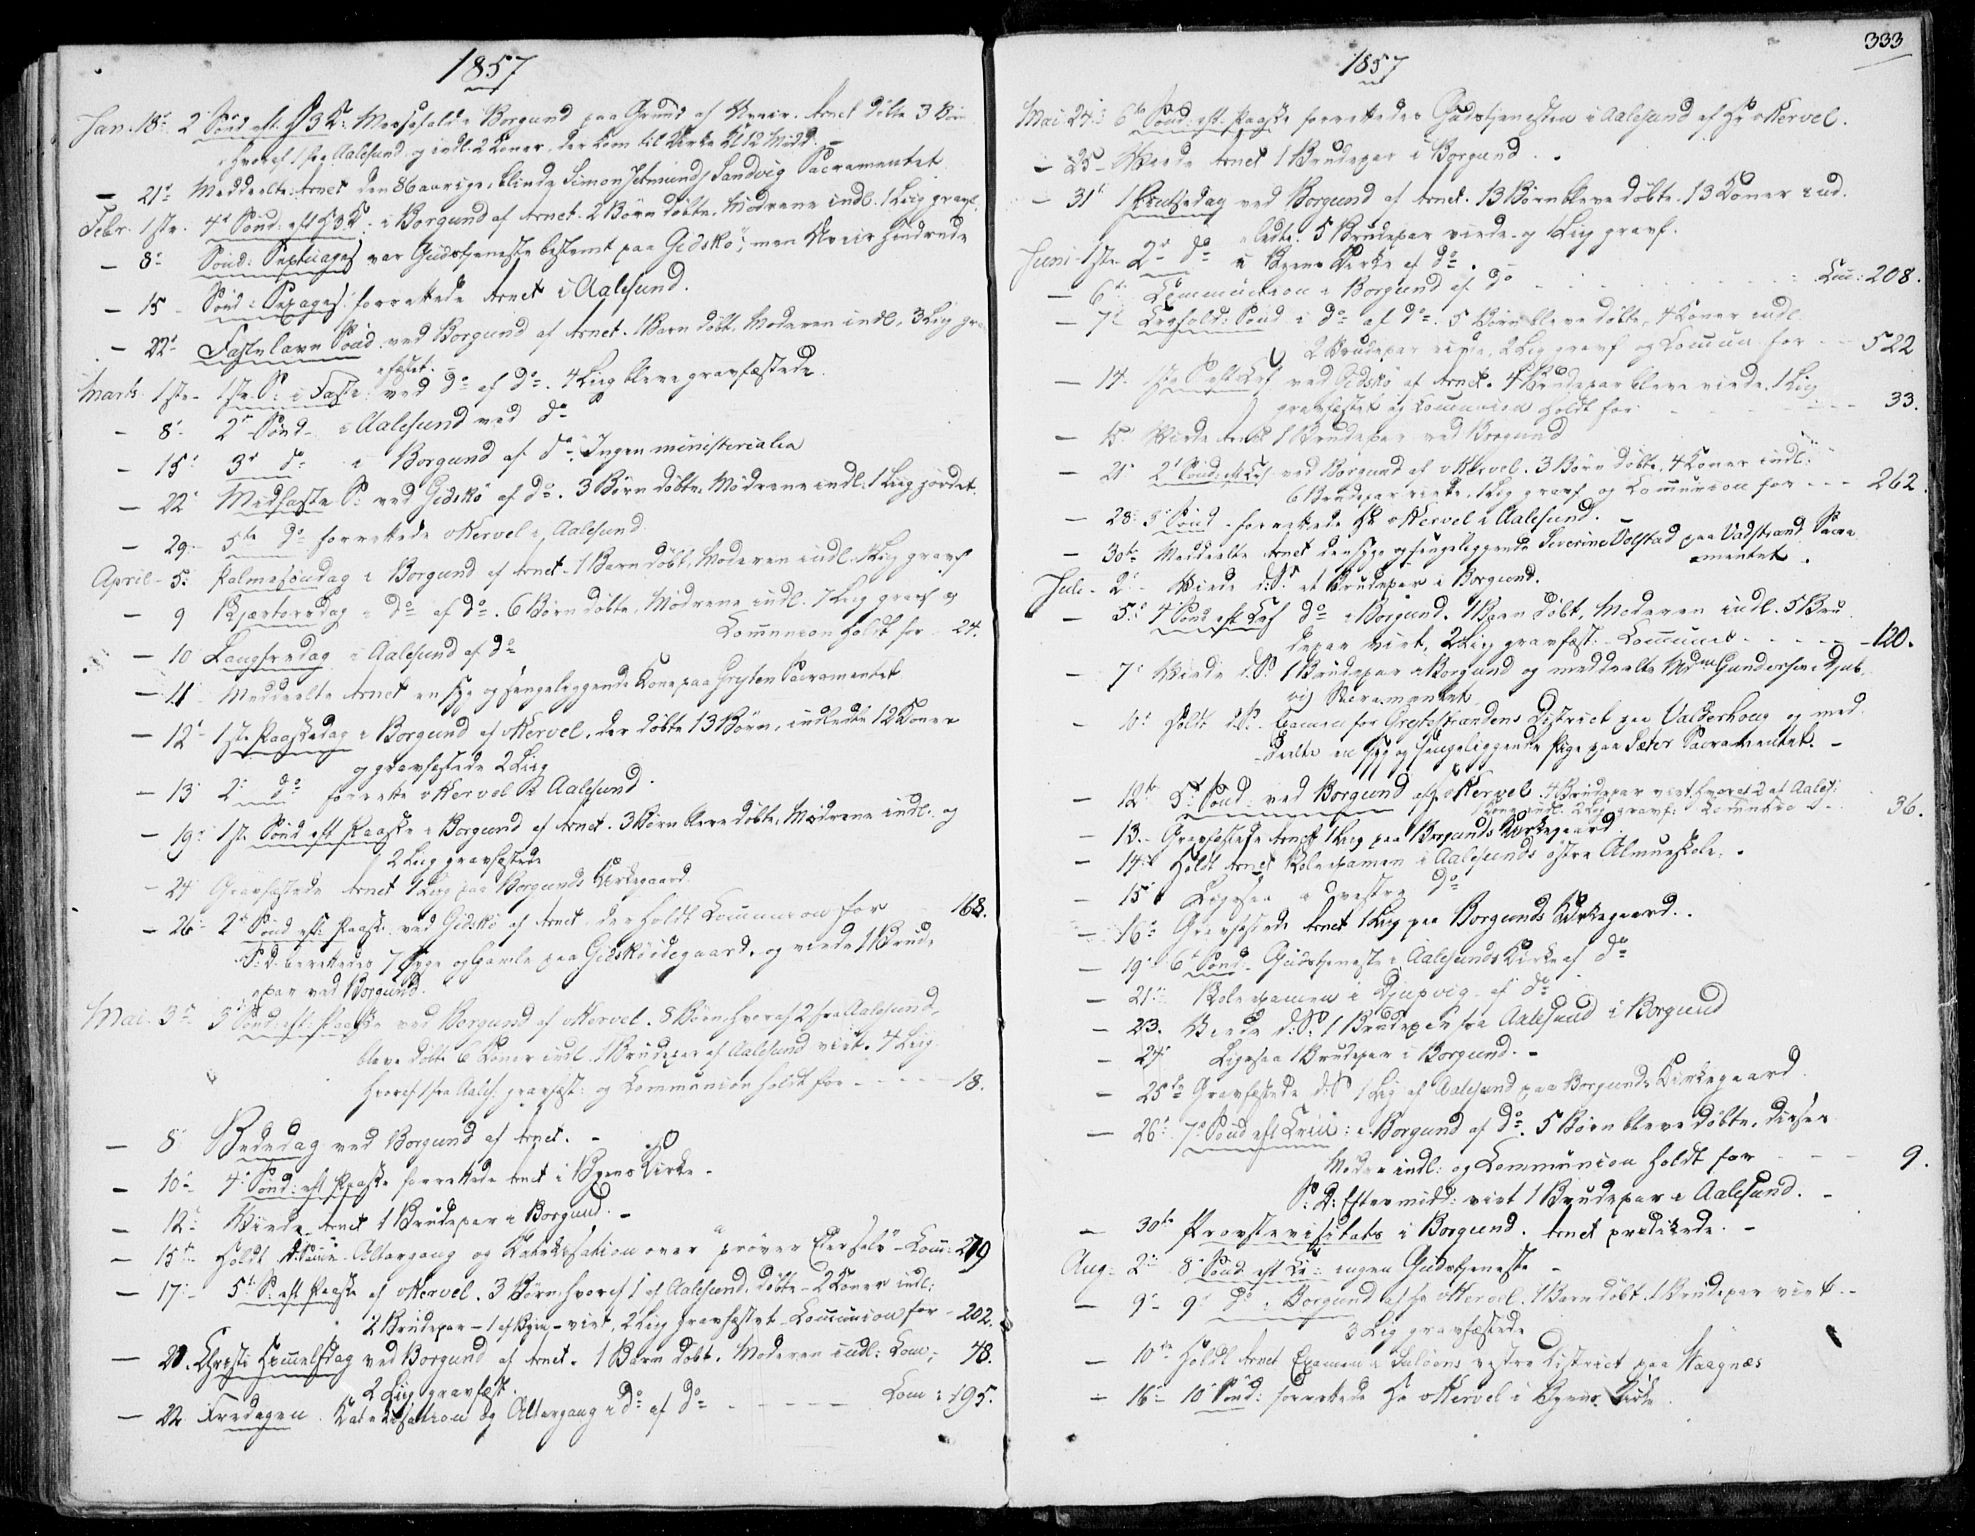 1857
Jan. 18de 2 Sønd eft. H3K: Messefald i Borgund paa Grund af Uveir. Arnet døbte 3 Børn
hvoraf 1 fra Aalesund, og indl. 2 Koner, der kom til Kirke Kl 12 Midd. -
- 21de Meddeelte Arnet den 86 aarige, blinde Simon Sandvig Sacramentet
Febr. 1ste. 4de Sønd: eft H3K: i Borgund af Arnet. 2 Børn døbte, Mødrene indl. 1 Liig gravf.
- 8de Sønd: Septuages var Gudstjeneste bestemt paa Gidskø, men Uveir hindrede
- 15 - Sønd: Sexages: forrettede Arnet i Aalesund.
- 22de Fastelavns Sønd. ved Borgund af Arnet. 1 Barn døbt, Moderen indl. 3 Liig gra-
vfæstet. -
Marts 1ste - 1ste S: i Faste: ved do af do. 4 Liig bleve gravfæstede.
- 8de 2den Sønd - i Aalesund ved do
- 15de 3de do i Borgund af do. Ingen ministerialia
- 22 Midfaste S: ved Gidskø af do. 3 Børn døbte, Mødrene indl. 1 Liig jordet.
- 29 - 5te do forrettede v Kervel i Aalesund.
April - 5de Palmesøndag i Borgund af Arnet - 1 Barn døbt, Moderen indl. 1 Liig gravf
- 9 Skjærtorsdag i do af do. 6 Børn døbte, Mødrene indl. 7 Liig gravf og
Communion holdt for - 24.
- 10 Langfredag i Aalesund af do
- 11 Meddeelte Arnet en syg og sengeliggende Kone paa Grytten Sacramentet
- 12de 1ste Paaskedag i Borgund af v Kervel, der døbte 13 Børn, indledte 12 Koner
og gravfæstede 2 Liig
- 13 2de do forrette v Kervel i Aalesund.
- 19de 1ste Sønd eft Paaske i Borgund af Arnet. 3 Børn bleve døbte, Mødrene indl. og
2 Liig gravfæstede
- 24 Gravfæstede Arnet 1 Liig paa Borgunds Kirkegaard.
- 26de 2den Sønd eft: Paaske ved Gidskø af Arnet, der holdt Communion for 168.
S:D. berettedes 7 syge og gamle paa Gidskøødegaard, og viede 1 Brude-
par ved Borgund.
Mai 3de 3de Sønd: eft: Paaske ved Borgund af v Kervel. 8 Børn, hvoraf 2 fra Aalesund,
bleve døbte 6 Koner indl. 1 Brudepar af Aalesund viet. 4 Liig
hvoraf 1 fra Aales: gravfæst: og Communion holdt for - - - - - 18.
- 8 Bededag ved Borgund af Arnet. -
- 10de 4de Sønd: eft Paaske forrettede Arnet i Byens Kirke. -
- 12te Viede Arnet 1 Brudepar i Borgund. -
- 15de Holdt Altergang og Katekisation over "prøver Eder selv" Com: 279
- 17de 5te S: eft Paaske af v Kervel. 3 Børn, hvoraf 1 af Aalesund, døbte - 2 Koner indl:
2 Brudepar - 1 af Byen - viet, 2 Liig gravfæstet - Communion for - 202.
- 21. Christi Himmelfdag ved Borgund af Arnet. 1 Barn døbt. Moderen indl: Com: 48.
2 Liig gravfæst.
- 22 Fredagen. Katekisation og Altergang i do af do - - - - - Com: 195.
333
1857
Mai 24de 6te Sønd: eft. Paaske forrettedes Gudstjenesten i Aalesund af Hr v Kervel.
- 25 - Viede Arnet 1 Brudepar i Borgund. -
- 31te 1 Pintsedag ved Borgund af Arnet. 13 Børn bleve døbte. 13 Koner ind-
ledte. 5 Brudepar viede og 1 Liig gravf.
Juni 1ste 2den do i Byens Kirke af do. -
- 6te Communion i Borgund af do - - - - - Com: 208.
- 7de Trefold: Sønd i do af do. 5 Børn bleve døbte, 4 Koner indl.
2 Brudepar viede, 2 Liig gravf og Commun. for - - 522
- 14. 1ste S eft Tref ved Gidskø af Arnet. 4 Brudepar bleve viede, 1 Liig
gravfæstet og Communion holdt for - - - - - 33.
- 15 Viede Arnet 1 Brudepar ved Borgund
- 21de 2den Sønd: eft Tref ved Borgund af v Kervel. 3 Børn døbte, 4 Koner indl:
6 Brudepar viede, 1 Liig gravf og Communion for - - - 262.
- 28de 3de Sønd - forrettede Hr v Kervel i Aalesund. -
- 30te Meddeelte Arnet den syge og sengeliggende Severine Volstad paa Vadstrand Sacra-
mentet.
Juli - 2de - Viede d:S: et Brudepar i Borgund.
- 5te 4 Sønd eft Tref do i Borgund. 1 Barn døbt, Moderen indl. 5 Bru-
depar viet, 2 Liig gravfæst - Commun: - - - - - 120.
- 7de Viede d.S. 1 Brudepar i Borgund og meddeelte Mdm Gundersen i Djub-
vig Sacramentet.
- 10de Holdt d.S. Examen for Grytestrandens District paa Valderhoug og med-
deelte en syg og sengeliggende Pige paa Sæter Sacramentet. -
- 12te 5te Sønd: ved Borgund af v Kervel. 4 Brudepar viet, hvoraf 2 af Aales:
Kone indl. 2 Liig gravf: Communion 36.
- 13. - Gravfæstede Arnet 1 Liig paa Borgunds Kirkegaard.
- 14de Holdt Arnet Skoleexamen i Aalesunds østre Almueskole. -
- 15de Ligesaa i vestre do
- 16de Gravfæstede Arnet 1 Liig paa Borgunds Kirkegaard. -
- 19de 6te Sønd - Gudstjeneste i Aalesunds Kirke af do
- 21de Skoleexamen i Djupvig af do
- 23. Viede d:S: 1 Brudepar fra Aalesund i Borgund
- 24 Ligesaa 1 Brudepar i Borgund. -
- 25de Gravfæstede d:S 1 Liig af Aalesund paa Borgunds Kirkegaard.
- 26de 7de Sønd eft Trin: i Borgund af do. 5 Børn bleve døbte, disses
Mødre indl: og Communion holdt for - - - 9.
S:D: Eftermidd: viet 1 Brudepar i Aalesund. -
- 30te Provstevisitats i Borgund. Arnet prædikede. -
Aug. 2den 8de Sønd eft Tr: ingen Gudstjeneste -
- 9de 9de do i Borgund af Hr v Kervel. 1 Barn døbt. 1 Brudepar viet. -
3 Liig gravfæstede
- 10de Holdt Arnet Examen i Suløens vestre District paa Vaagnæs
- 16de 10de Sønd: forrettede Hr v Kervel i Byens Kirke